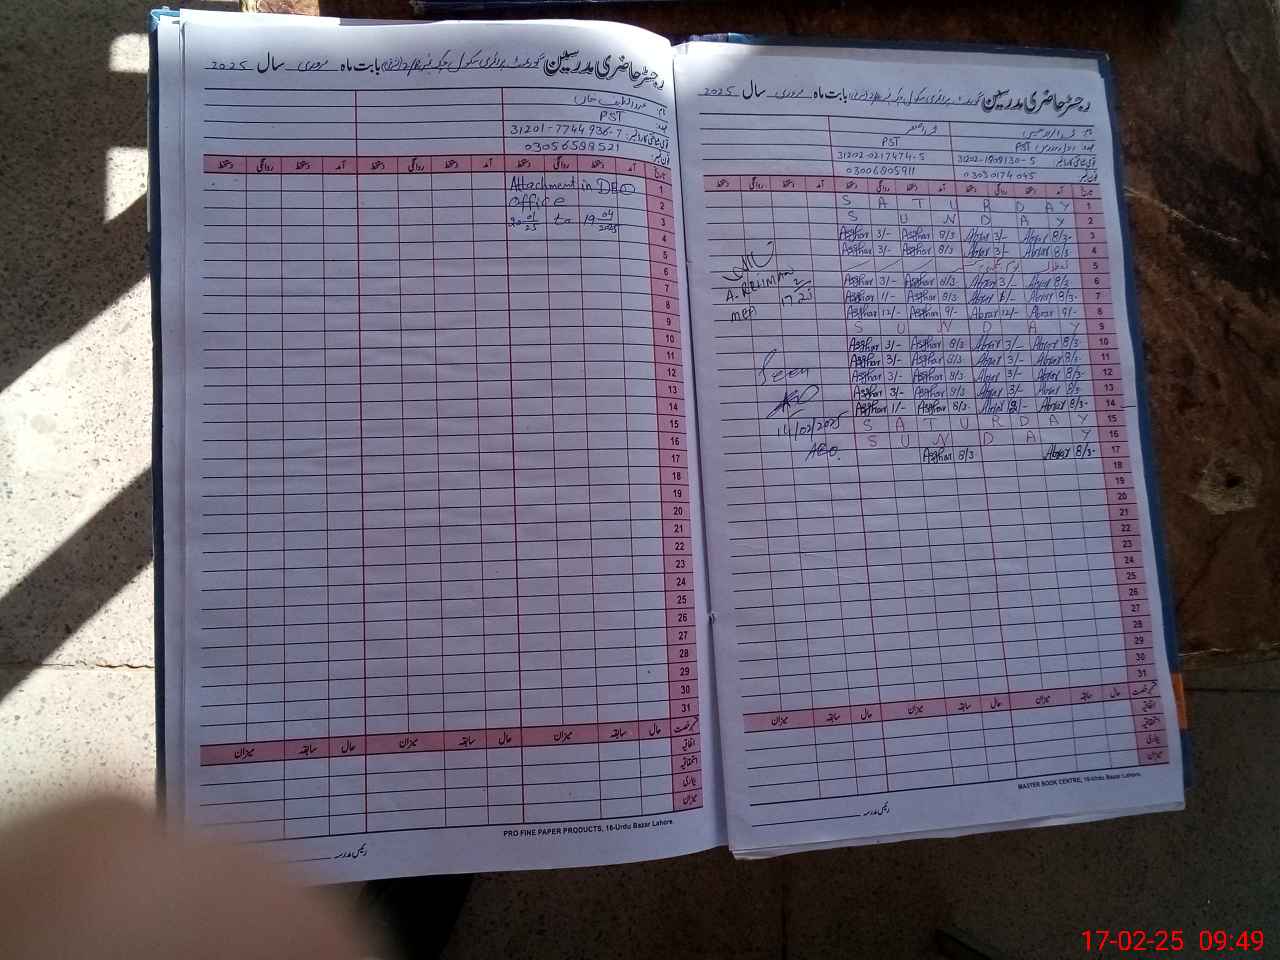 رجسٹر حاضری مدرسین
بابت ماہ فروری سال 2025
PST
31201-7744936-7
03056588521
تاریخ آمد دستخط روانگی دستخط آمد دستخط روانگی دستخط آمد دستخط روانگی دستخط
1 Attachment in DEO
2 office
3 20 01/25 to 19 04/2025
4
5
6
7
8
9
10
11
12
13
14
15
16
17
18
19
20
21
22
23
24
25
26
27
28
29
30
31
حال سابقہ میزان حال سابقہ میزان حال سابقہ میزان
اتفاقیہ
استحقاقیہ
بیماری
میزان
PRO FINE PAPER PRODUCTS, 16-Urdu Bazar Lahore.
رئیس مدرسہ
رجسٹر حاضری مدرسین
بابت ماہ فروری سال 2025
PST
PST
31202-0217474-5
03006805911
تاریخ آمد دستخط روانگی دستخط آمد دستخط روانگی دستخط آمد دستخط روانگی دستخط
1 SATURDAY
2 SUNDAY
3 Asghar 3/- Asghar 8/3 Abrar 3/- Abrar 8/3-
4 Asghar 3/- Asghar 8/3 Abrar 3/- Abrar 8/3-
5
6 Asghar 3/- Asghar 8/3 Abrar 3/- Abrar 8/3
7 Asghar 1/- Asghar 8/3 Abrar Abrar 8/3-
8 Asghar 12/- Asghar 9/- Abrar 12/- Abrar 9/-
9 SUNDAY
10 Asghar 3/- Asghar 8/3 Abrar 3/- Abrar 8/3-
11 Asghar 3/- Asghar 8/3 Abrar 3/- Abrar 8/3-
12 Asghar 3/- Asghar 8/3 Abrar 3/- Abrar 8/3-
13 Asghar 3/- Asghar 8/3 Abrar 3/- Abrar 8/3-
14 Asghar 1/- Asghar 8/3- Abrar Abrar 8/3-
15 SATURDAY
16 SUNDAY
17 Asghar 8/3 Abrar 8/3-
18
19
20
21
22
23
24
25
26
27
28
29
30
31
A. REHMAN
MEA 17.2.25
Seen
14/02/2025
AEO.
حال سابقہ میزان حال سابقہ میزان حال سابقہ میزان
اتفاقیہ
استحقاقیہ
بیماری
میزان
MASTER BOOK CENTRE, 16-Urdu Bazar Lahore.
رئیس مدرسہ
17-02-25 09:49